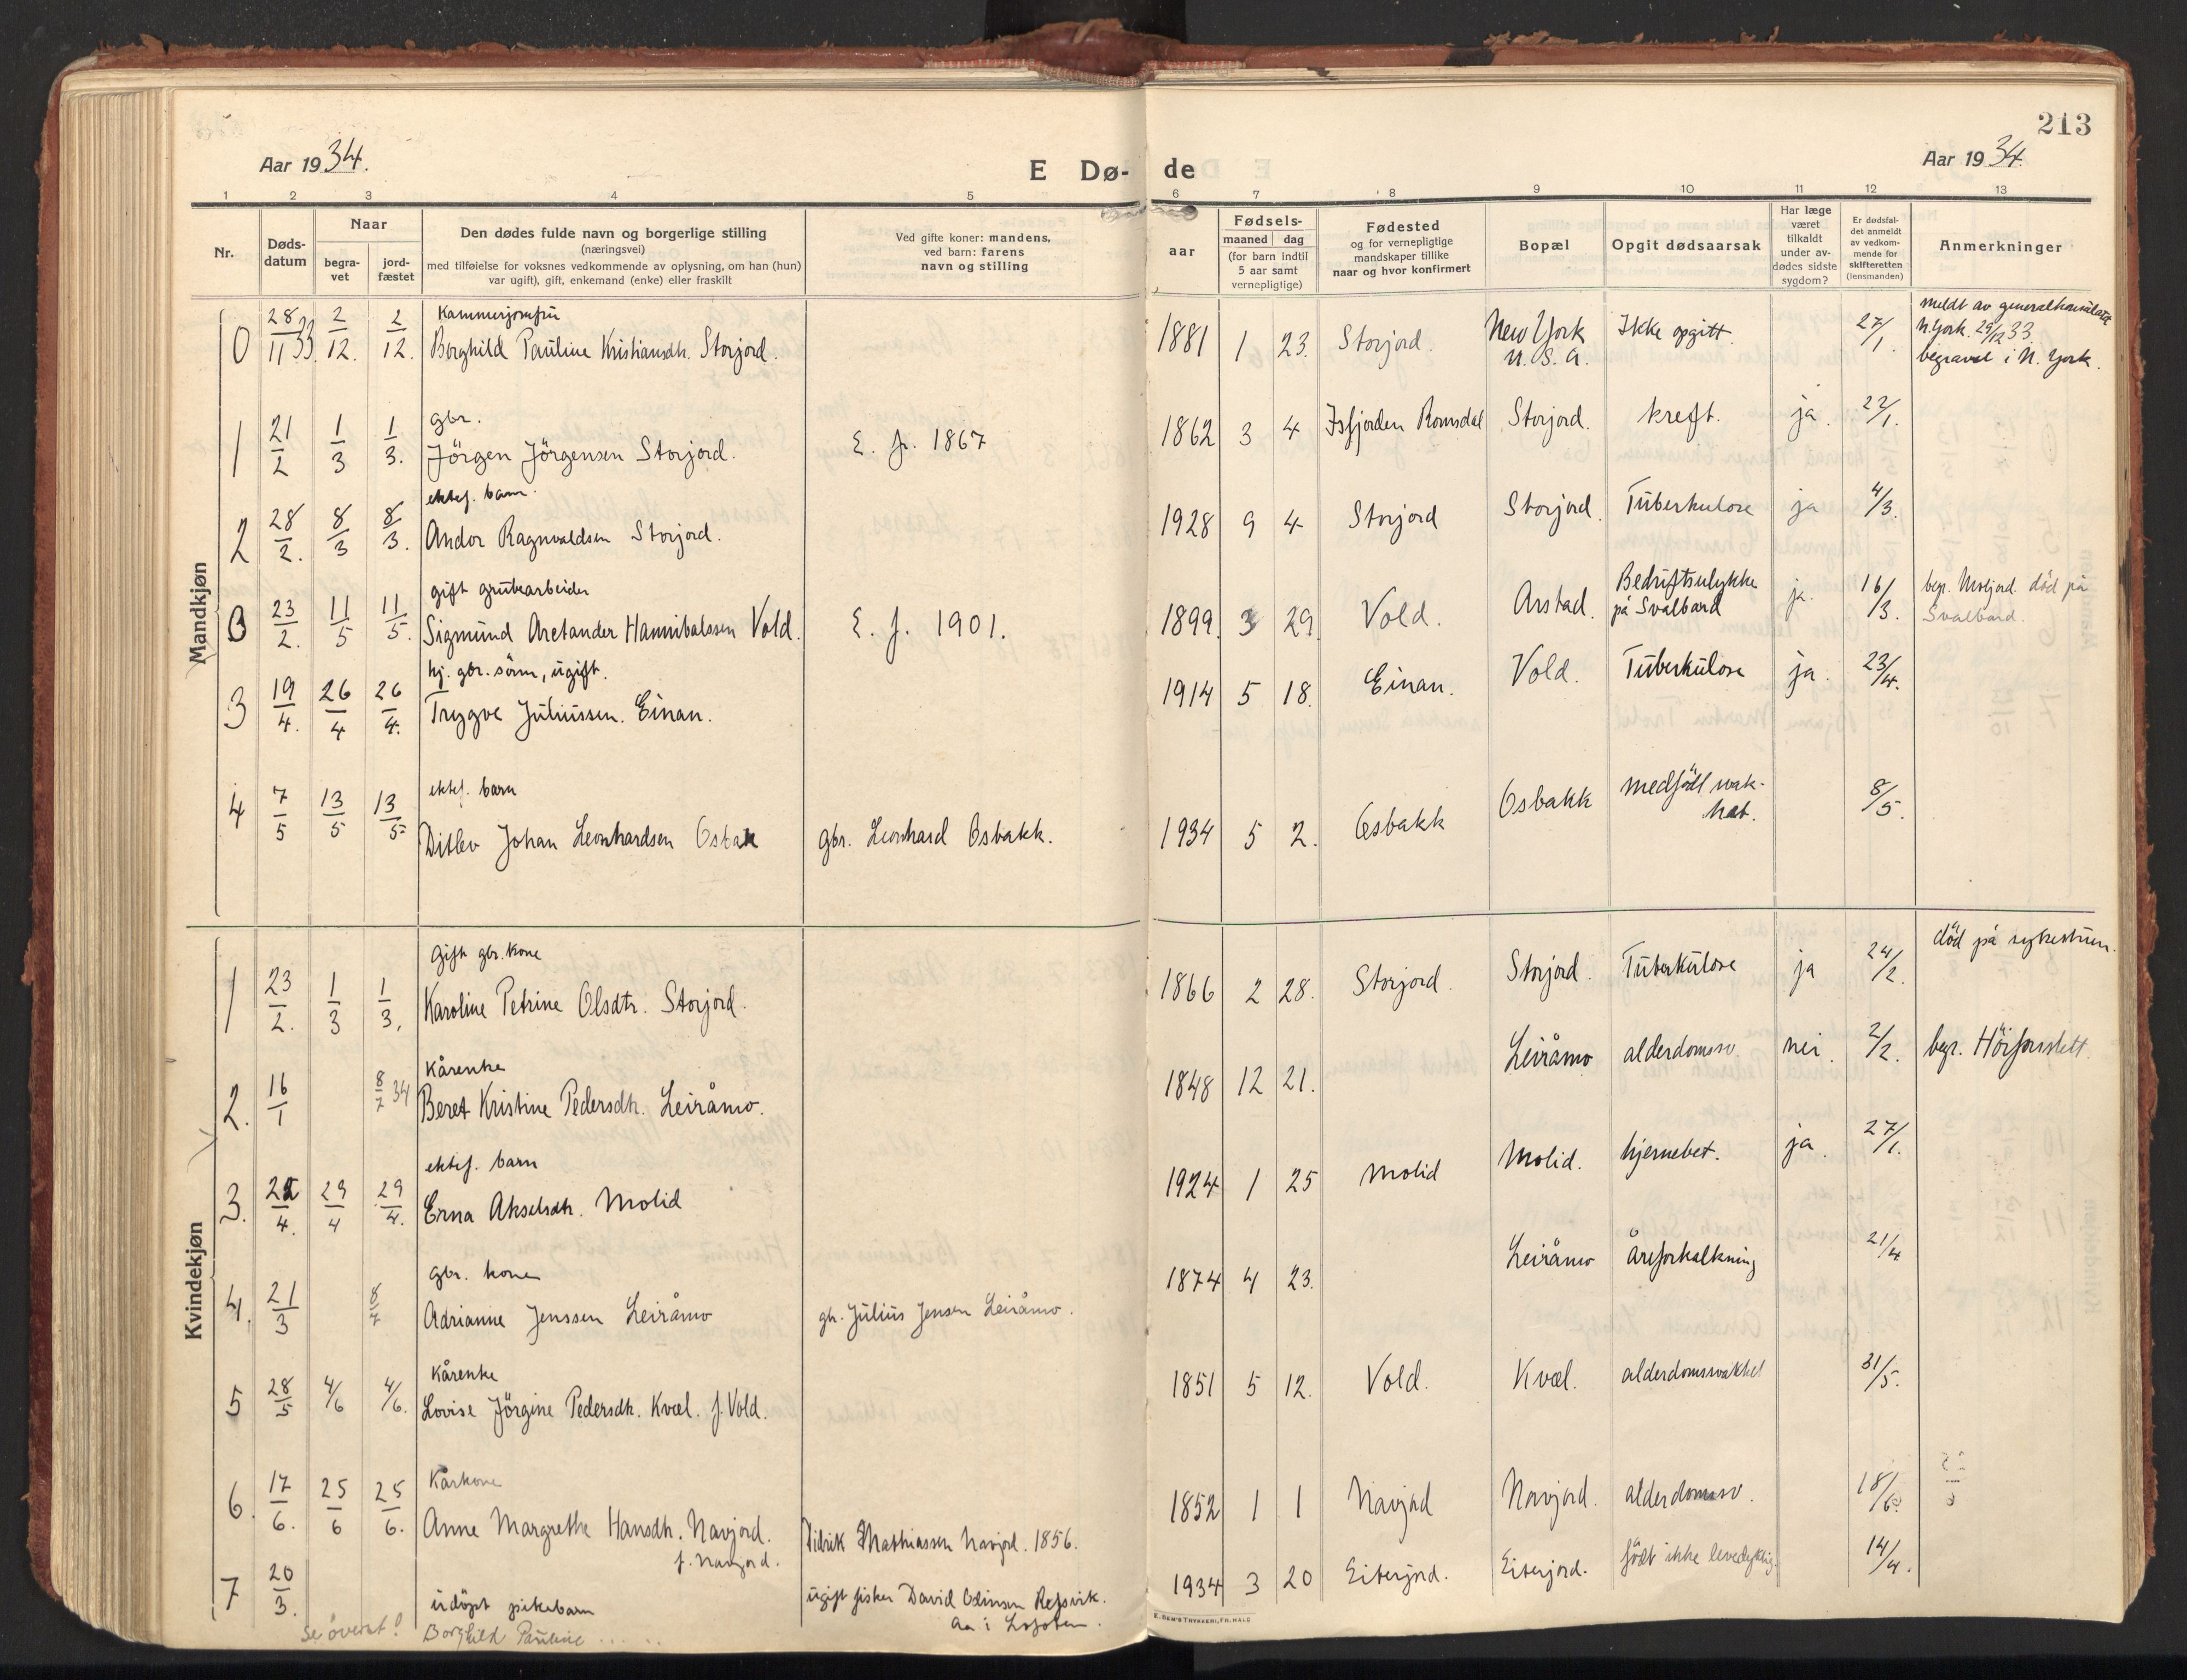 213
Aar 1934.
E Dø-
de
Aar 1934.
1 2 3 4 5 6 7 8 9 10 11 12 13
Nr.
Døds-
datum
Naar
begra-
vet
jord-
fæstet
Den dødes fulde navn og borgerlige stilling
(næringsvei)
med tilføielse for voksnes vedkommende av oplysning, om han (hun)
var ugift), gift, enkemand (enke) eller fraskilt
Ved gifte koner: mandens,
ved barn: farens
navn og stilling
aar
Fødsels-
maaned dag
(for barn indtil
5 aar samt
vernepligtige)
Fødested
og for vernepligtige
mandskaper tillike
naar og hvor konfirmert
Bopæl
Opgit dødsaarsak
Har læge
været
tilkaldt
under av-
dødes sidste
sygdom?
Er dødsfal-
det anmeldt
av vedkom-
mende for
skifteretten
(lensmanden)
Anmerkninger
Mandkjøn
Kammerjomfru
0 28/11 33. 2/12. 2/12. Borghild Pauline Kristiansdtr. Storjord. 1881 1 23. Storjord. New York Ikke opgitt. 27/1. meldt av generalkonsulatet
U.S.A. N. York 29/12 33.
begravet i N. York.
gbr.
1 21/2 1/3 1/3. Jörgen Jörgensen Storjord. E. f. 1867 1862 3 4 Isfjorden Romsdal Storjord. kreft. ja. 22/1.
ektef. barn.
2 28/2. 8/3 8/3. Andor Ragnvaldsen Storjord. 1928 9 4 Storjord Storjord. Tüberkulose ja 4/3.
gift grubearbeider
0 23/2. 11/5 11/5. Sigmund Aretander Hannibalssen Vold. E. f. 1901. 1899. 3 29. Vold. Arstad. Bedriftsulykke ja. 16/3. begr. Misfjord. död på
på Svalbard Svalbard.
hj. gbr. sönn, ugift.
3 19/4. 26/4 26/4. Trygve Juliussen. Einan. 1914 5 18. Einan. Vold. Tüberkülose ja. 23/4.
ektef. barn
4 7/5 13/5 13/5 Ditlev Johan Leonhardsen Osbak gbr. Leonhard Osbakk. 1934 5 2. Osbakk Osbakk medfödt svak- 8/5.
het.
Kvindekjøn
Gift gbr. kone
1 23/2. 1/3 1/3, Karoline Petrine Olsdtr. Storjord. 1866 2 28. Storjord. Storjord. Tüberkülose ja 24/2. död på sykestuen.
Kårenke
2. 16/1 8/7 34 Beret Kristine Pedersdtr. Leiråmo. 1848 12 21. Leiråmo alderdomssv. nei. 2/2. begr.
ektef. barn
3. 22/4. 29/4 29/4. Erna Akselsdtr. Molid 1924 1 25 Molid Molid. hjernebet. ja. 27/1.
Gbr. kone
4. 21/3 8/7 Adrianne Jenssen Leiråmo gbr. Julius Jensen Leiråmo. 1874 4 23. Leiråmo Åreforkalkning 21/4
Kårenke
5 28/5 4/6 4/6. Lovise Jörgine Pedersdtr. Kvæl. f. Vold. 1851 5 12. Vold. Kvæl. alderdomssvakhet 31/5.
Kårkone
6. 17/6. 25/6 25/6. Anne Margrethe Hansdtr. Navjord. Didrik Mathiassen Navjord. 1856. 1852 1 1 Navjord Navjord. alderdomssv. 18/6.
f. Navjord.
7 20/3. udöpt pikebarn ugift fisker David Odinsen Refsvik. 1934 3 20 Eiterjord. Eiterjord. födt ikke levedyktig. 14/4.
Aa i Lofoten.
se överst! Borghild Pauline .....
E. SEM'S TRYKKERI, FR.HALD